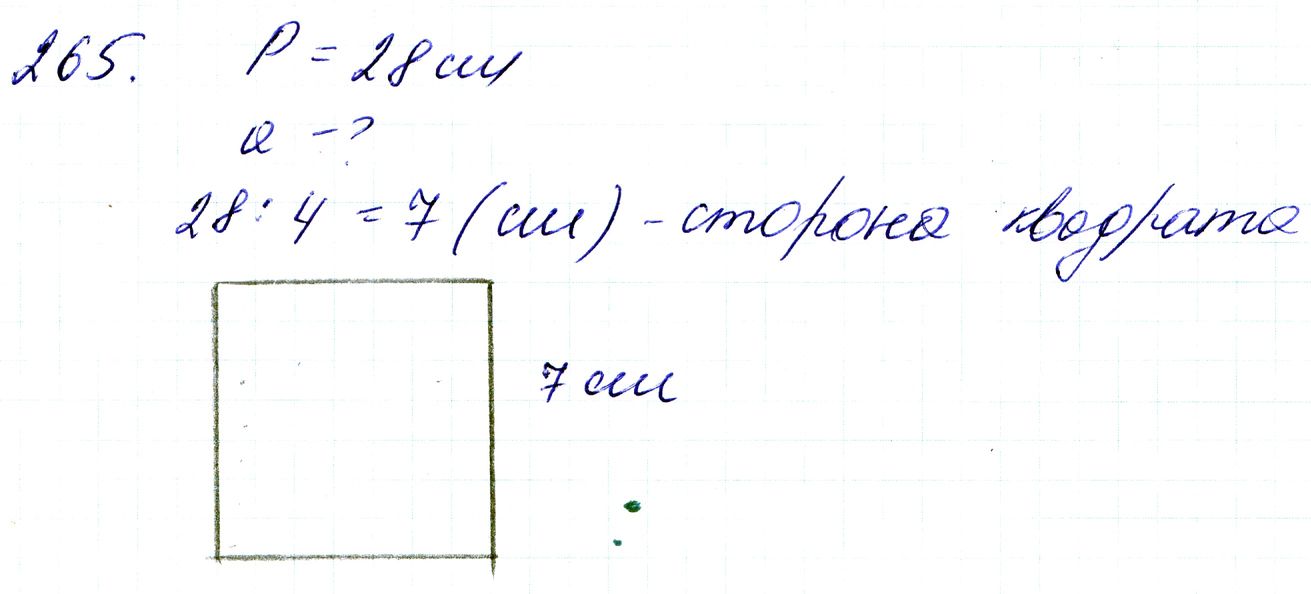 265. P = 28 см
a - ?
28 : 4 = 7 (см) - сторона квадрата
7 см